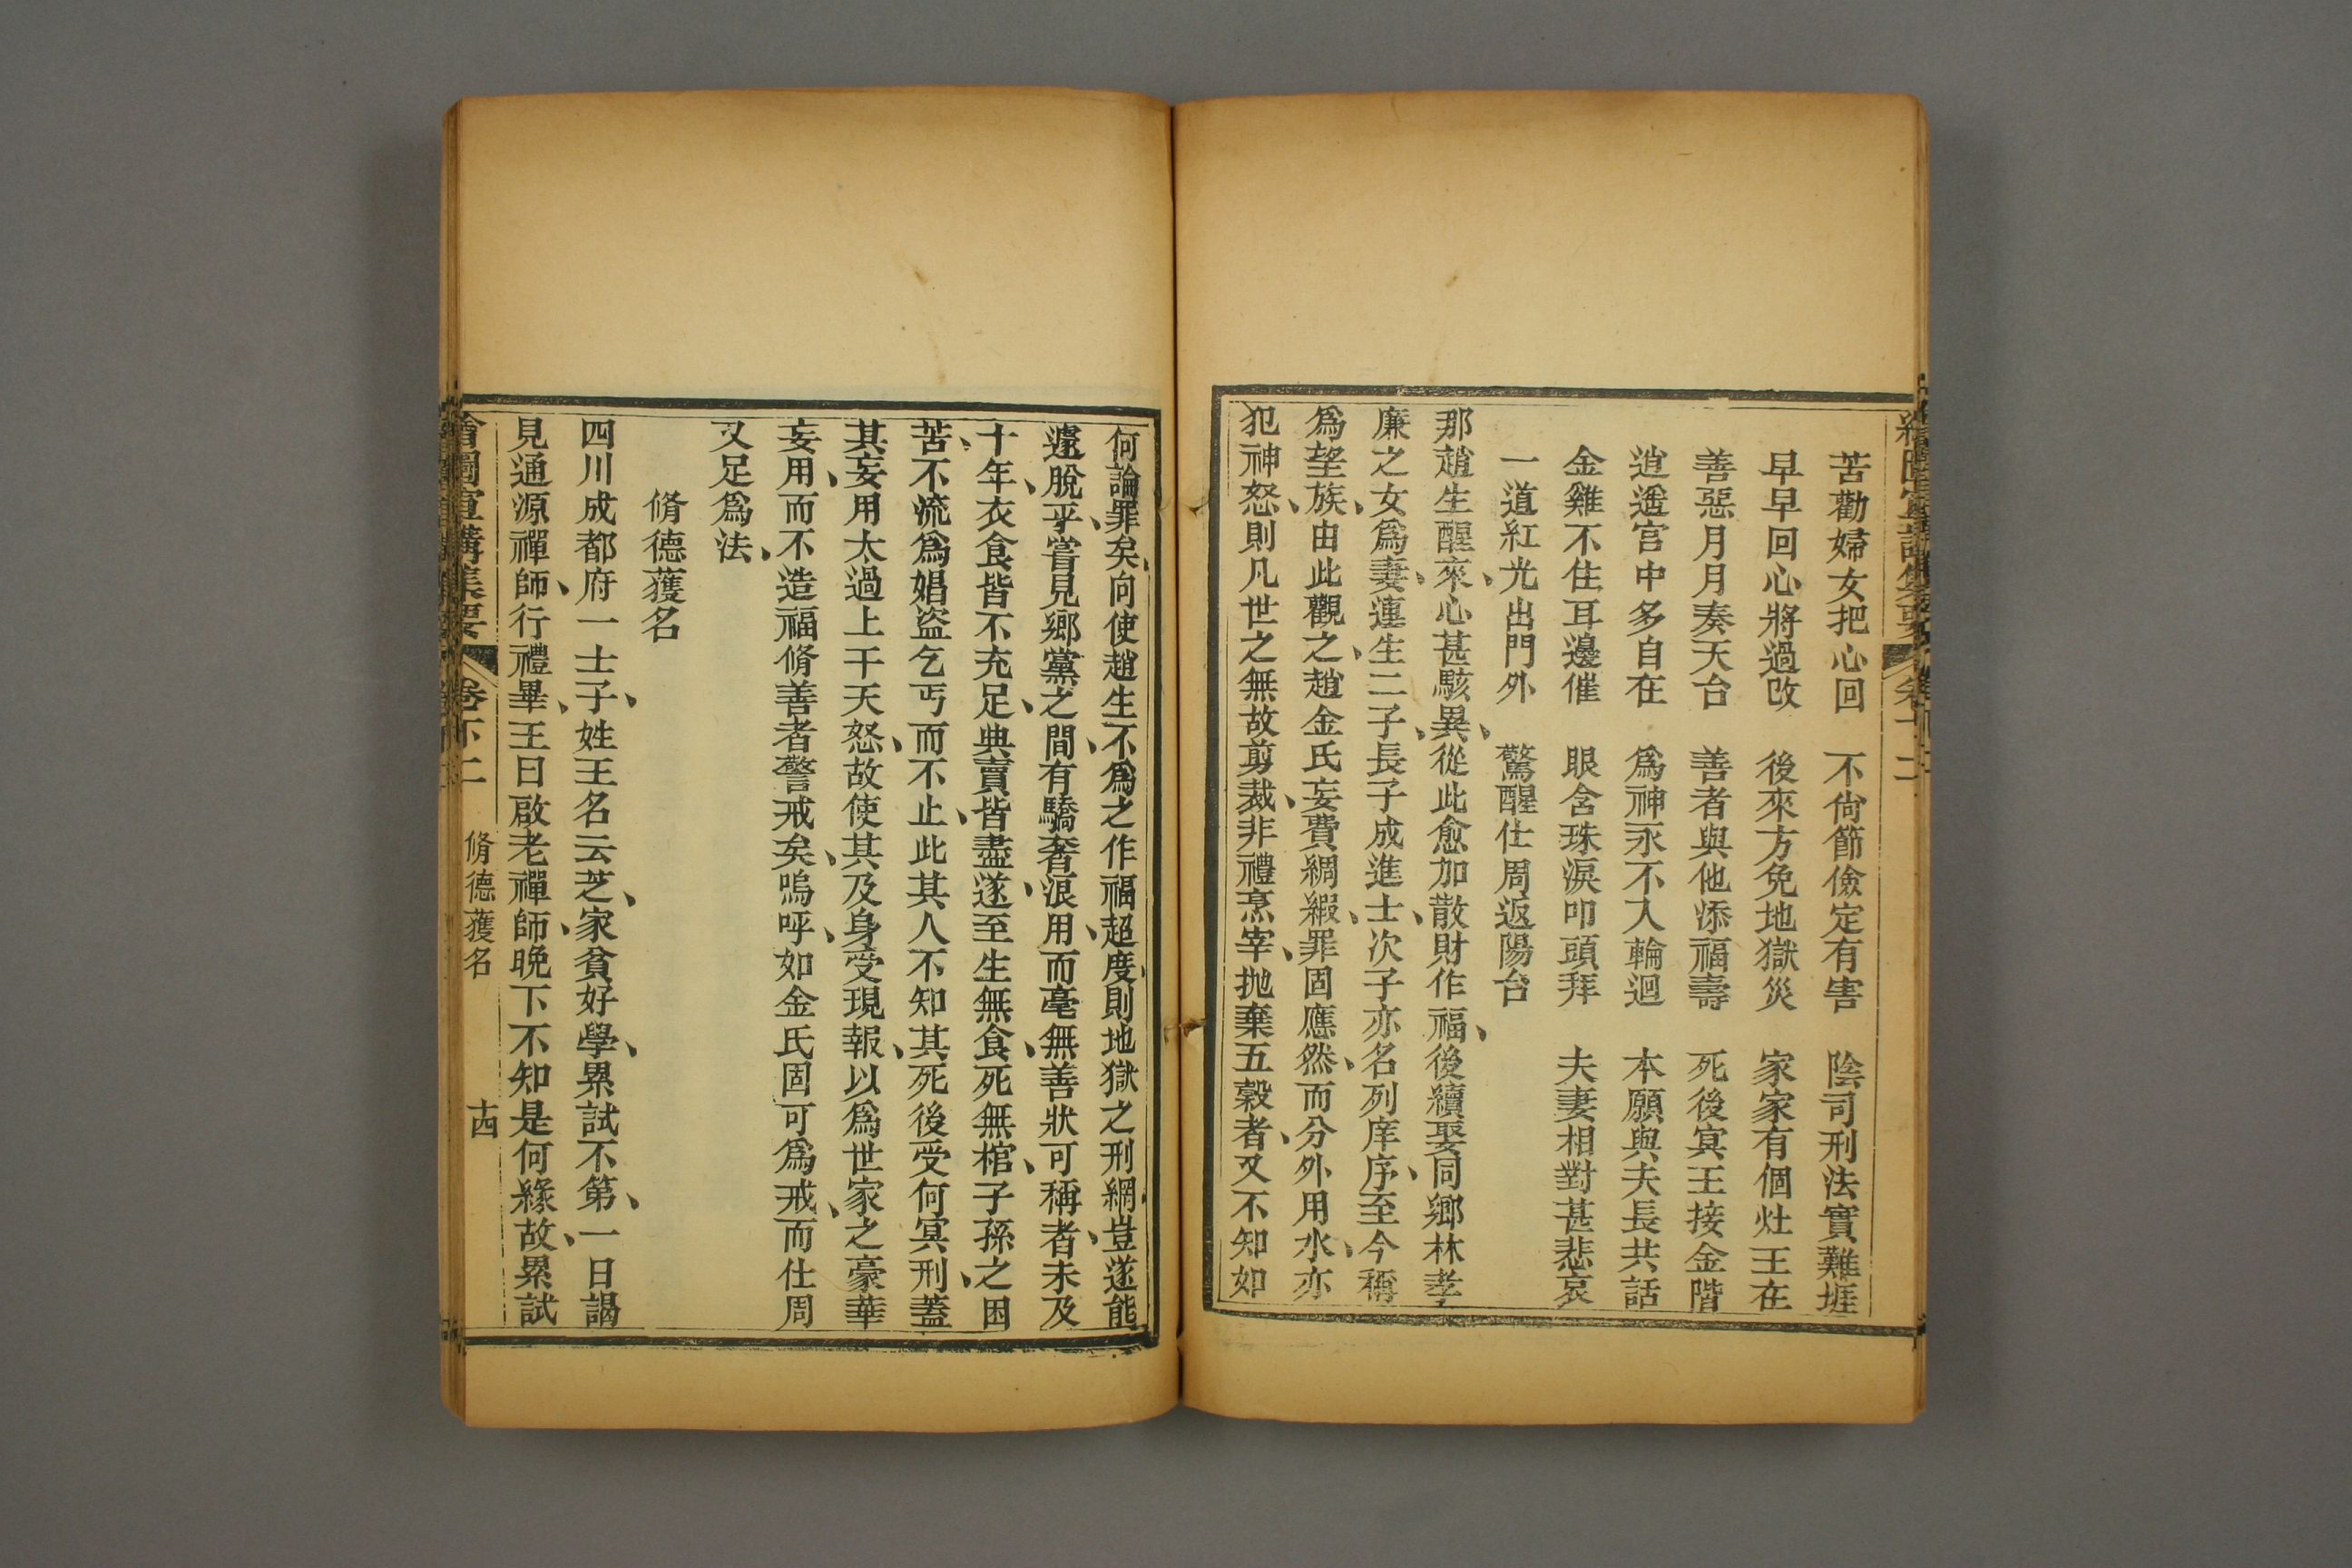 苦勸婦女把心回　不尙節儉定有害　陰司刑法實難捱
早早回心將過改　後來方免地獄災　家家有個灶王在
善惡月月奏天台　善者與他添福壽　死後冥王接金階
逍遥宮中多自在　爲神永不入輪迴　本願與夫長共話
金雞不住耳邊催　眼含珠淚叩頭拜　夫妻相對甚悲哀
一道紅光出門外　驚醒仕周返陽台
那趙生醒來、心甚駭異、從此愈加散財作福、後續娶同鄉林孝
廉之女爲妻、連生二子、長子成進士、次子亦名列庠序、至今稱
爲望族、由此觀之、趙金氏妄費綢緞、罪固應然、而分外用水、亦
犯神怒、則凡世之無故剪裁、非禮烹宰、抛棄五穀者、又不知如
何論罪矣、向使趙生不爲之作福超度、則地獄之刑網、豈遂能
遽脫乎、嘗見鄉黨之間、有驕奢浪用、而毫無善狀可稱者、未及
十年、衣食皆不充足、典賣皆盡、遂至生無食、死無棺、子孫之困
苦、不流爲娼盜乞丐而不止、此其人不知其死後受何冥刑、蓋
其妄用太過、上干天怒、故使其及身受現報、以爲世家之豪華
妄用、而不造福脩善者警戒矣、嗚呼、如金氏固可爲戒、而仕周
又足爲法、
脩德獲名
四川成都府一士子、姓王名云芝、家貧好學、累試不第、一日謁
見通源禪師、行禮畢、王曰啟老禪師、晚下不知是何緣故、累試
繪圖宣講集要　卷下二　脩德獲名　十四